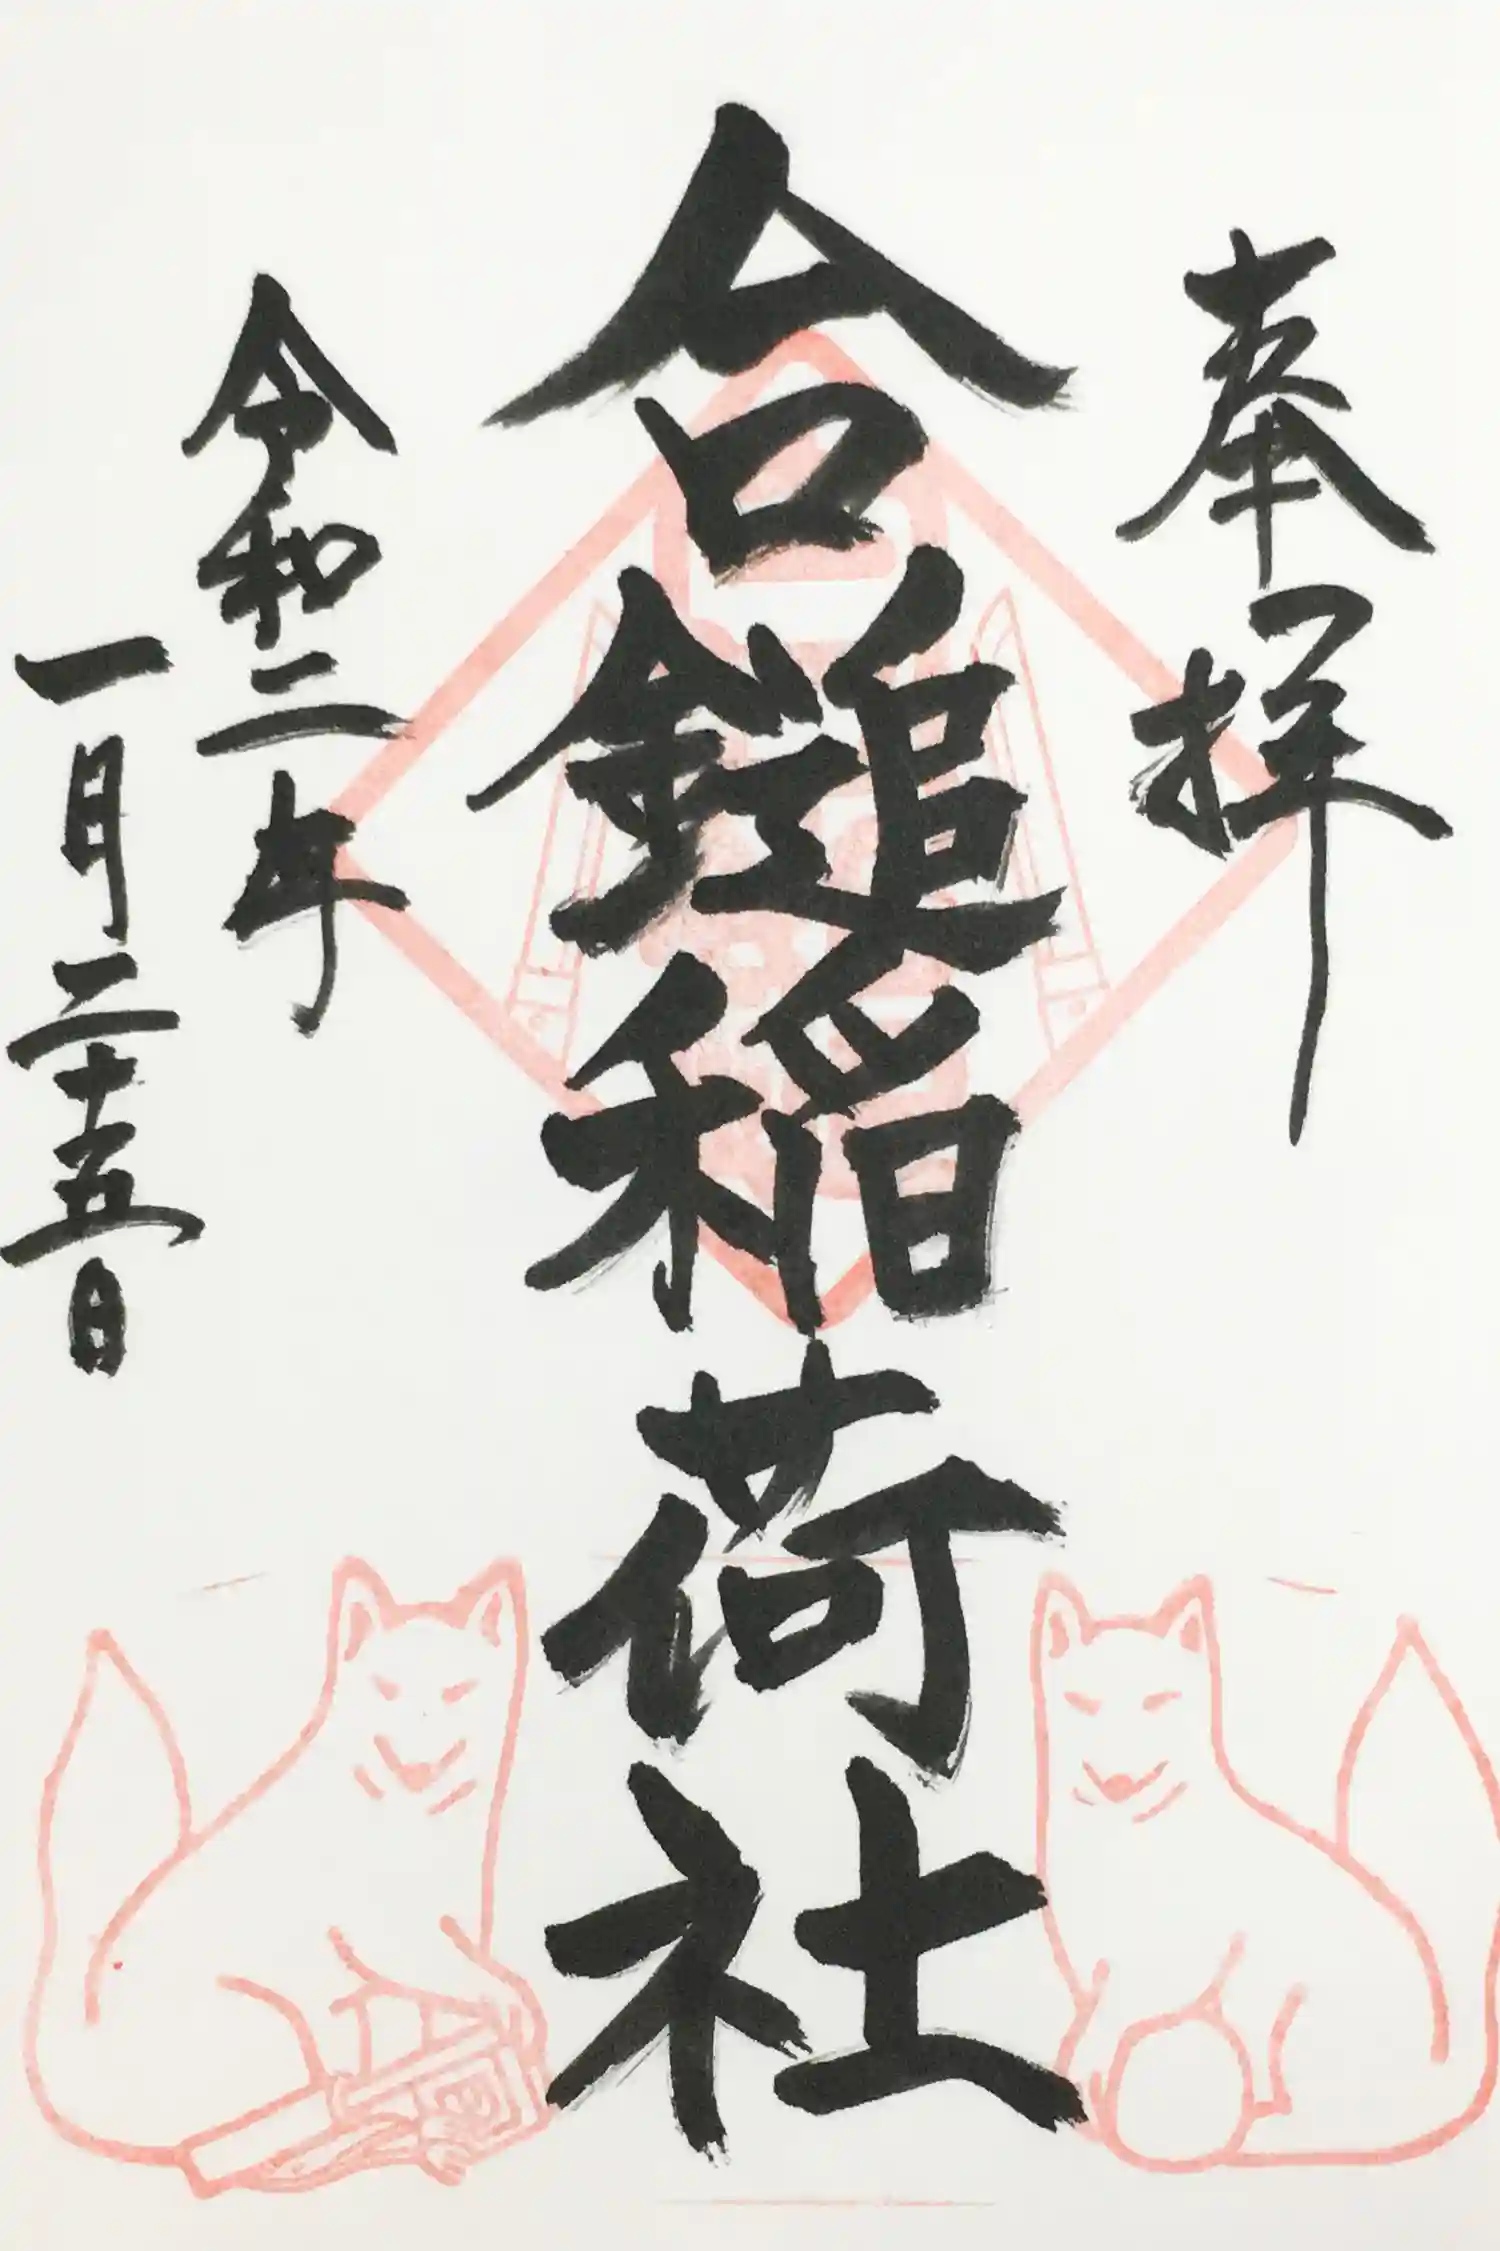 奉拝
合鎚稲荷社
令和二年
一月二十五日